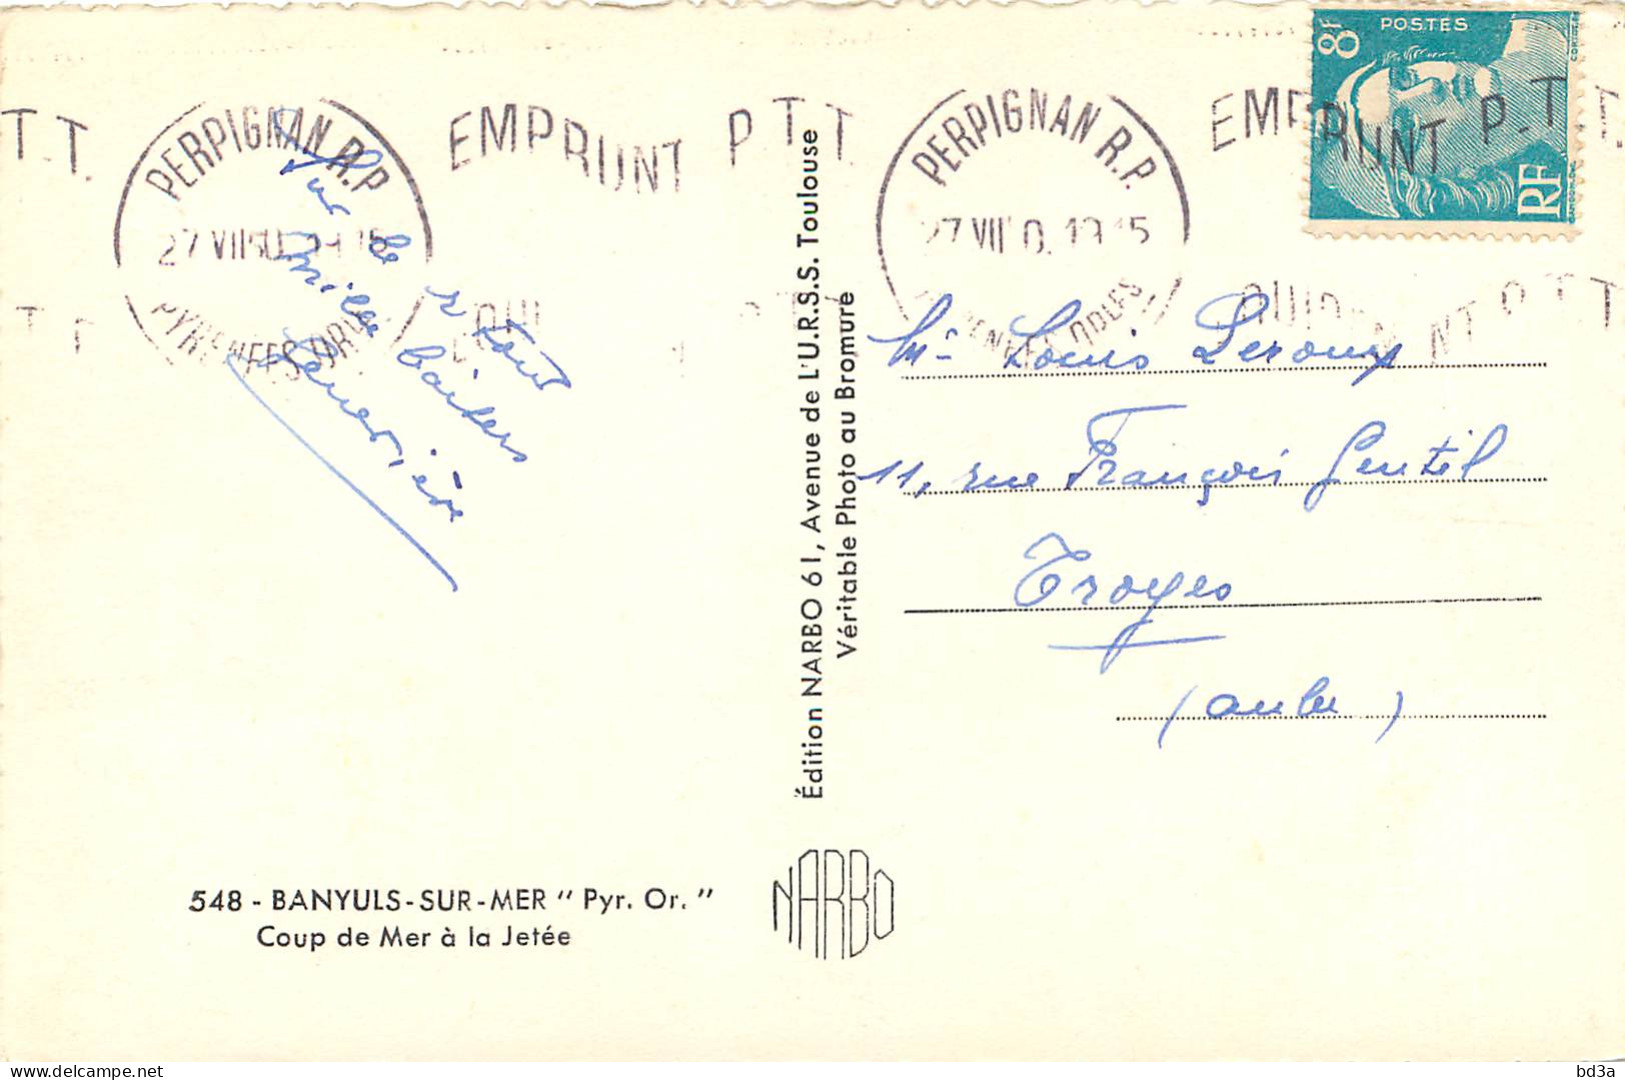 PERPIGNAN R.P.
27 VII 50. 19 15
PYRENEES ORLES
EMPRUNT P.T.T.
T.T.
Sur le retour
Mille baisers
Édition NARBO 61, Avenue de L'U.R.S.S. Toulouse
Véritable Photo au Bromuré
548 - BANYULS-SUR-MER " Pyr. Or. "
Coup de Mer à la Jetée
NARBO
PERPIGNAN R.P.
EMPRUNT P.T.T.
8F POSTES
RF
Mr Louis Leroux
11, rue François Gentil
Troyes
(Aube)
delcampe.net
bd3a